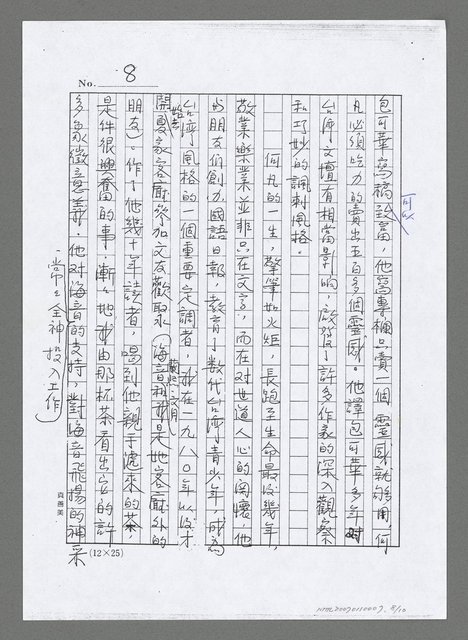 No. 8
可以
包可華寫稿致富，他寫專欄只賣一個靈感就夠用，何
凡必須吃力的賣出五百多個靈感。他譯包可華多年，對
台灣文壇有相當影響，啟發了許多作家的深入觀察
和巧妙的諷刺風格。
何凡的一生，擎筆如火炬，長跑至生命最後幾年，
敬業樂業並非只在文字，而在對世道人心的關懷，他
與朋友們創力國語日報，教育了數代台灣青少年，成為
台灣風格的一個重要定調者，我在一九八〇年以後才
開始去夏家客廳參加文友歡聚（海音初說我是她客廳外的
蘭熙 文月
朋友）。作了他幾十年讀者，喝到他親手遞來的茶，
是件很興奮的事，漸漸地我由那杯茶看出它的許
多象徵意義，他對海音的支持，對海音飛揚的神采
常常全神投入工作
真善美
(12×25)
NTML2007011000?. 8/10